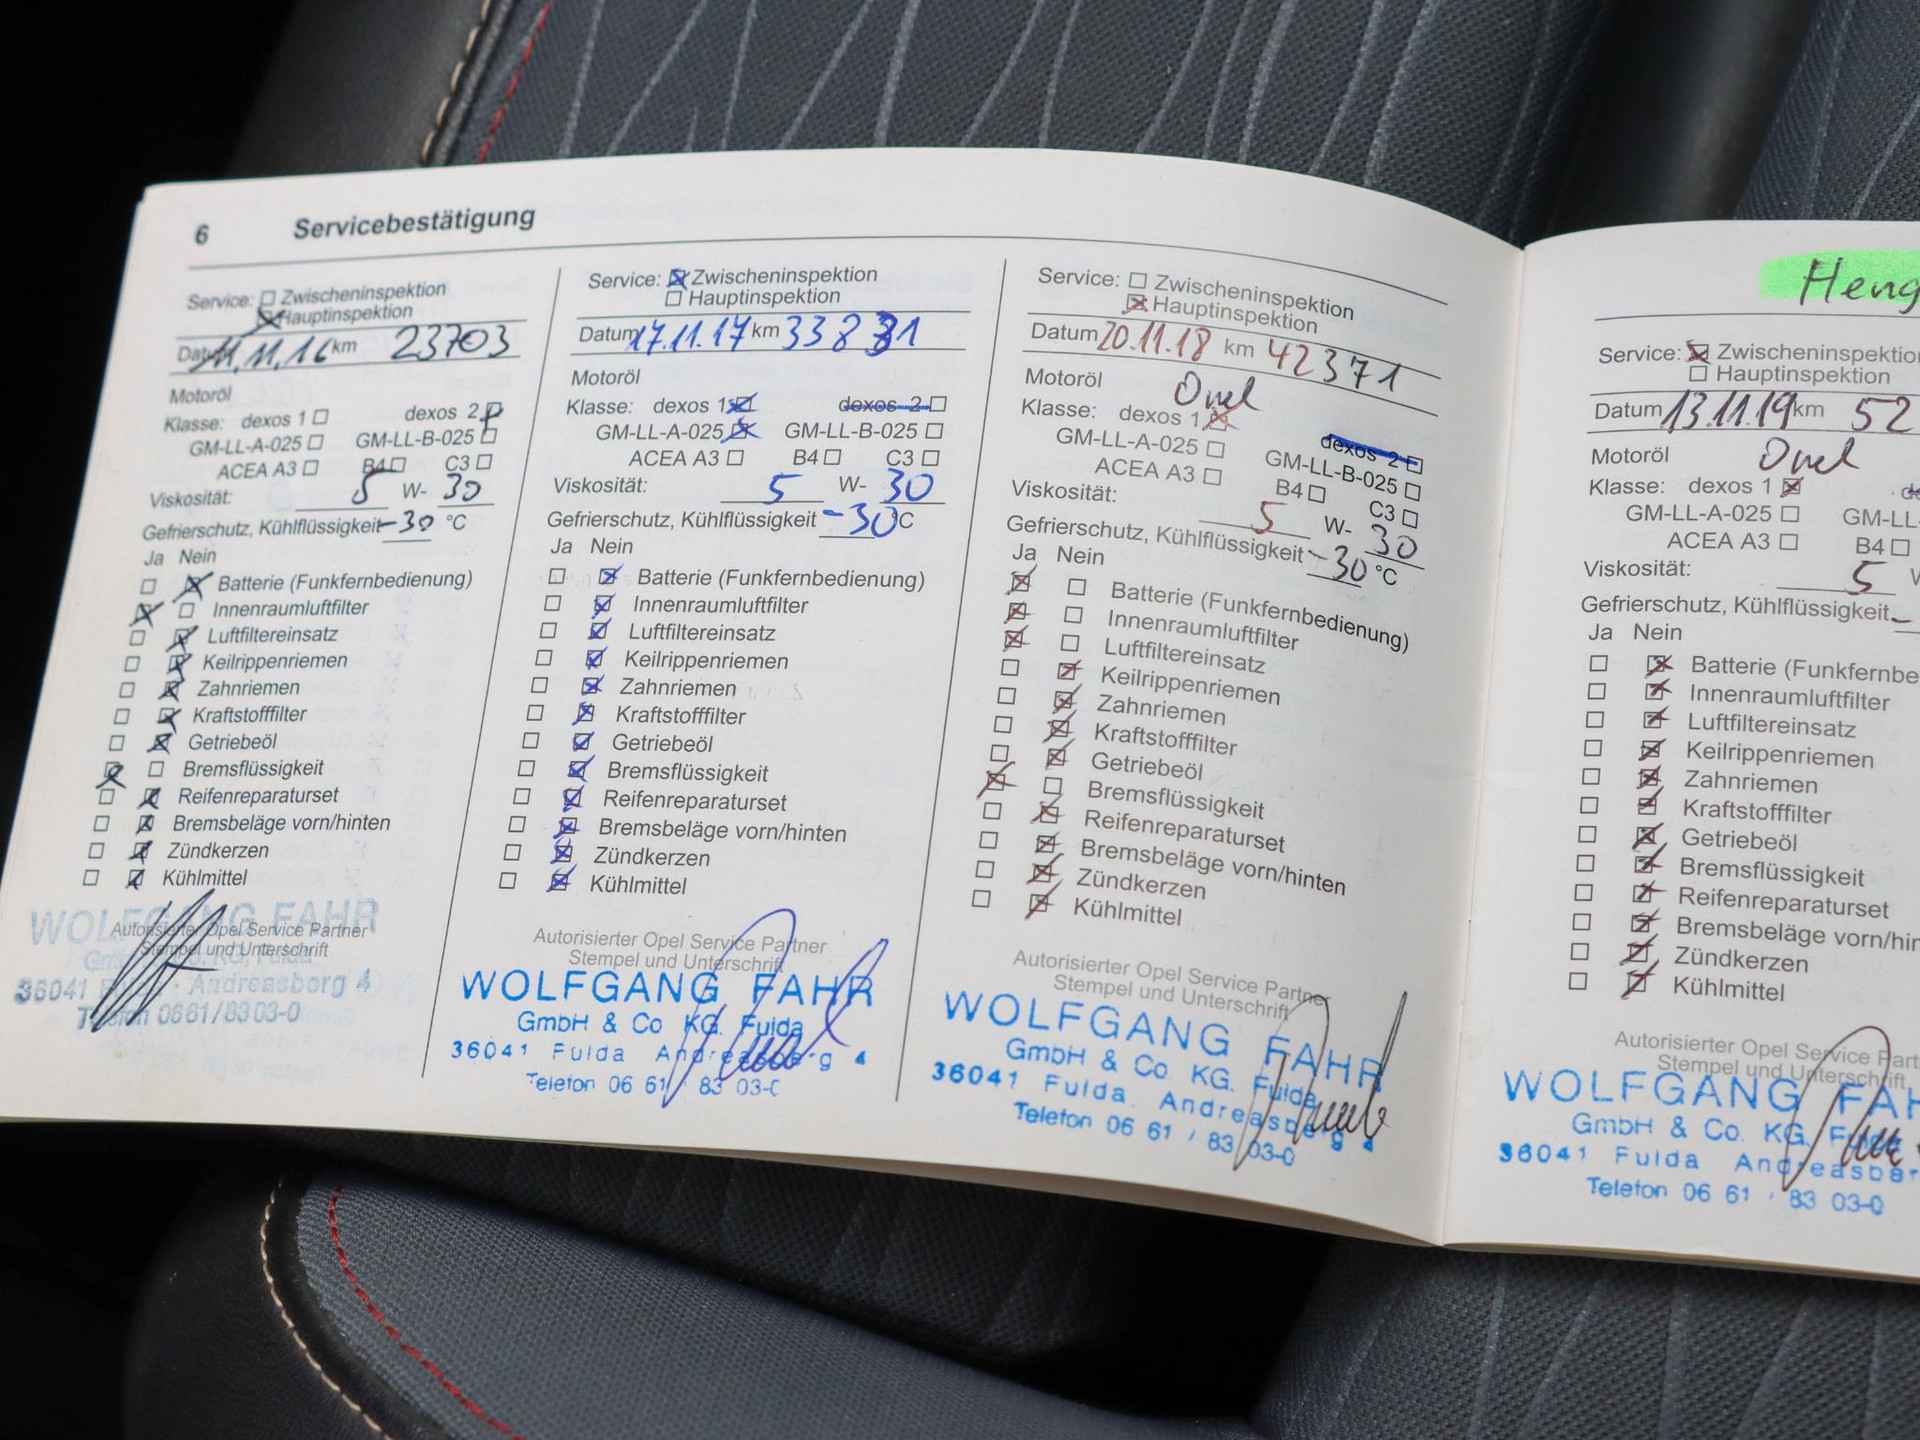 6 Servicebestätigung
Service: Zwischeninspektion
Hauptinspektion
Datum 11.11.16 km 23703
Motoröl
Klasse: dexos 1 dexos 2
GM-LL-A-025 GM-LL-B-025
ACEA A3 B4 C3
Viskosität: 5 W- 30
Gefrierschutz, Kühlflüssigkeit -30 °C
Ja Nein
Batterie (Funkfernbedienung)
Innenraumluftfilter
Luftfiltereinsatz
Keilrippenriemen
Zahnriemen
Kraftstofffilter
Getriebeöl
Bremsflüssigkeit
Reifenreparaturset
Bremsbeläge vorn/hinten
Zündkerzen
Kühlmittel
WOLFGANG FAHR
Autorisierter Opel Service Partner
Stempel und Unterschrift
36041 Andreasberg 4
Telefon 0661/8303-0
Service: Zwischeninspektion
Hauptinspektion
Datum 17.11.17 km 33831
Motoröl
Klasse: dexos 1 dexos 2
GM-LL-A-025 GM-LL-B-025
ACEA A3 B4 C3
Viskosität: 5 W- 30
Gefrierschutz, Kühlflüssigkeit -30°C
Ja Nein
Batterie (Funkfernbedienung)
Innenraumluftfilter
Luftfiltereinsatz
Keilrippenriemen
Zahnriemen
Kraftstofffilter
Getriebeöl
Bremsflüssigkeit
Reifenreparaturset
Bremsbeläge vorn/hinten
Zündkerzen
Kühlmittel
Autorisierter Opel Service Partner
Stempel und Unterschrift
WOLFGANG FAHR
GmbH & Co KG. Fulda
36041 Fulda Andreasberg 4
Telefon 06 61 / 83 03-0
Service: Zwischeninspektion
Hauptinspektion
Datum 20.11.18 km 42371
Motoröl Opel
Klasse: dexos 1 dexos 2
GM-LL-A-025 GM-LL-B-025
ACEA A3 B4 C3
Viskosität: 5 W- 30
Gefrierschutz, Kühlflüssigkeit -30 °C
Ja Nein
Batterie (Funkfernbedienung)
Innenraumluftfilter
Luftfiltereinsatz
Keilrippenriemen
Zahnriemen
Kraftstofffilter
Getriebeöl
Bremsflüssigkeit
Reifenreparaturset
Bremsbeläge vorn/hinten
Zündkerzen
Kühlmittel
Autorisierter Opel Service Partner
Stempel und Unterschrift
WOLFGANG FAHR
GmbH & Co. KG. Fulda
36041 Fulda. Andreasberg 4
Telefon 06 61 / 83 03-0
Heng
Service: Zwischeninspektio
Hauptinspektion
Datum 13.11.19 km 52
Motoröl Opel
Klasse: dexos 1 de
GM-LL-A-025 GM-LL
ACEA A3 B4
Viskosität: 5 W
Gefrierschutz, Kühlflüssigkeit -
Ja Nein
Batterie (Funkfernbe
Innenraumluftfilter
Luftfiltereinsatz
Keilrippenriemen
Zahnriemen
Kraftstofffilter
Getriebeöl
Bremsflüssigkeit
Reifenreparaturset
Bremsbeläge vorn/hin
Zündkerzen
Kühlmittel
Autorisierter Opel Service Part
Stempel und Unterschrift
WOLFGANG FAH
GmbH & Co. KG. Fulda
36041 Fulda Andreasber
Telefon 06 61 / 83 03-0